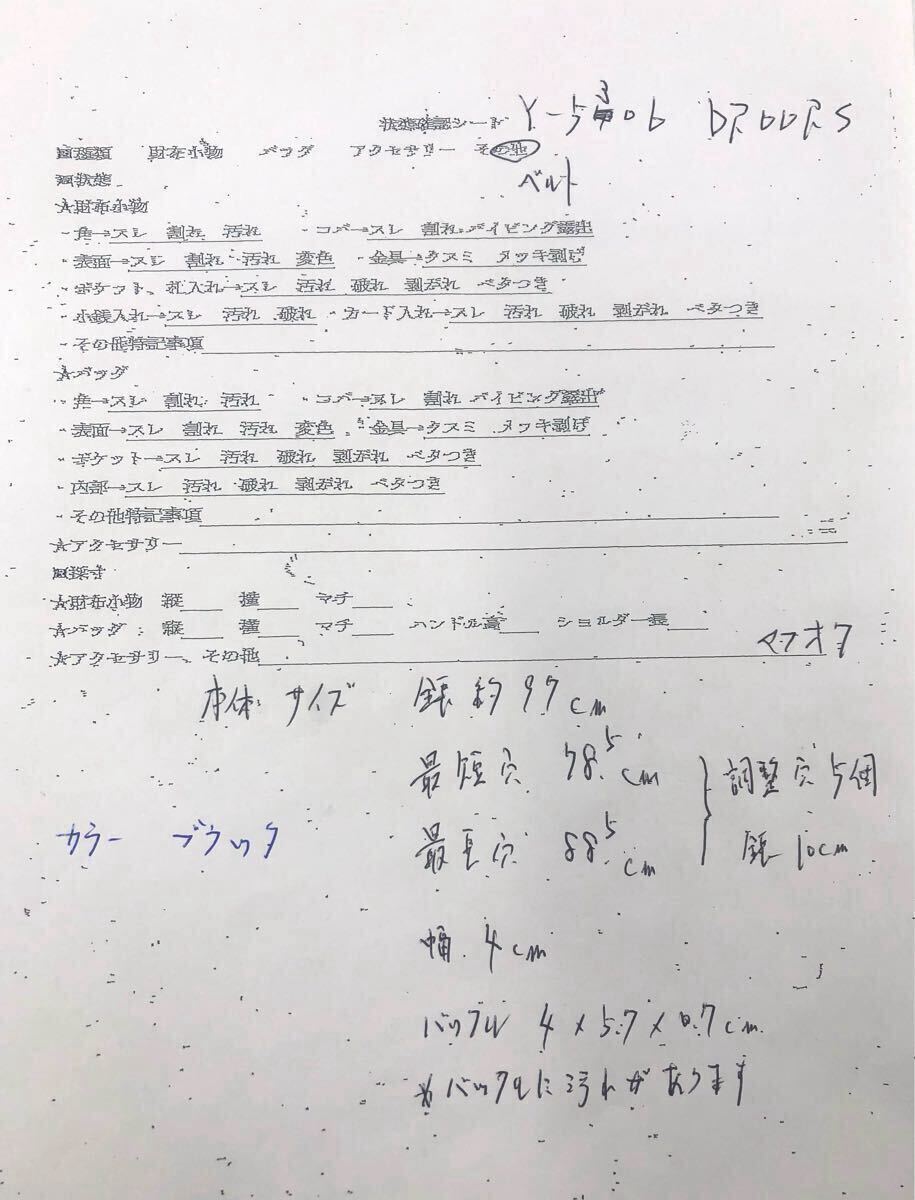 状態確認シート Y-5306 DROORS
□種類 財布小物 バッグ アクセサリー その他
□状態 ベルト
☆財布小物
・角→スレ 割れ 汚れ ・コバ→スレ 割れ パイピング露出
・表面→スレ 割れ 汚れ 変色 ・金具→クスミ メッキ剥げ
・ポケット、札入れ→スレ 汚れ 破れ 剥がれ ベタつき
・小銭入れ→スレ 汚れ 破れ ・カード入れ→スレ 汚れ 破れ 剥がれ ベタつき
・その他特記事項
☆バッグ
・角→スレ 割れ 汚れ ・コバ→スレ 割れ パイピング露出
・表面→スレ 割れ 汚れ 変色 ・金具→クスミ メッキ剥げ
・ポケット→スレ 汚れ 破れ 剥がれ ベタつき
・内部→スレ 汚れ 破れ 剥がれ ベタつき
・その他特記事項
☆アクセサリー
□採寸
☆財布小物 縦 横 マチ
☆バッグ 縦 横 マチ ハンドル高 ショルダー長
☆アクセサリー、その他
本体サイズ 長約97cm
最短穴 78.5cm 調整穴5個
カラー ブラック 最長穴 88.5cm 長10cm
幅 4cm
バックル 4×5.7×0.7cm
※バックルに汚れがあります